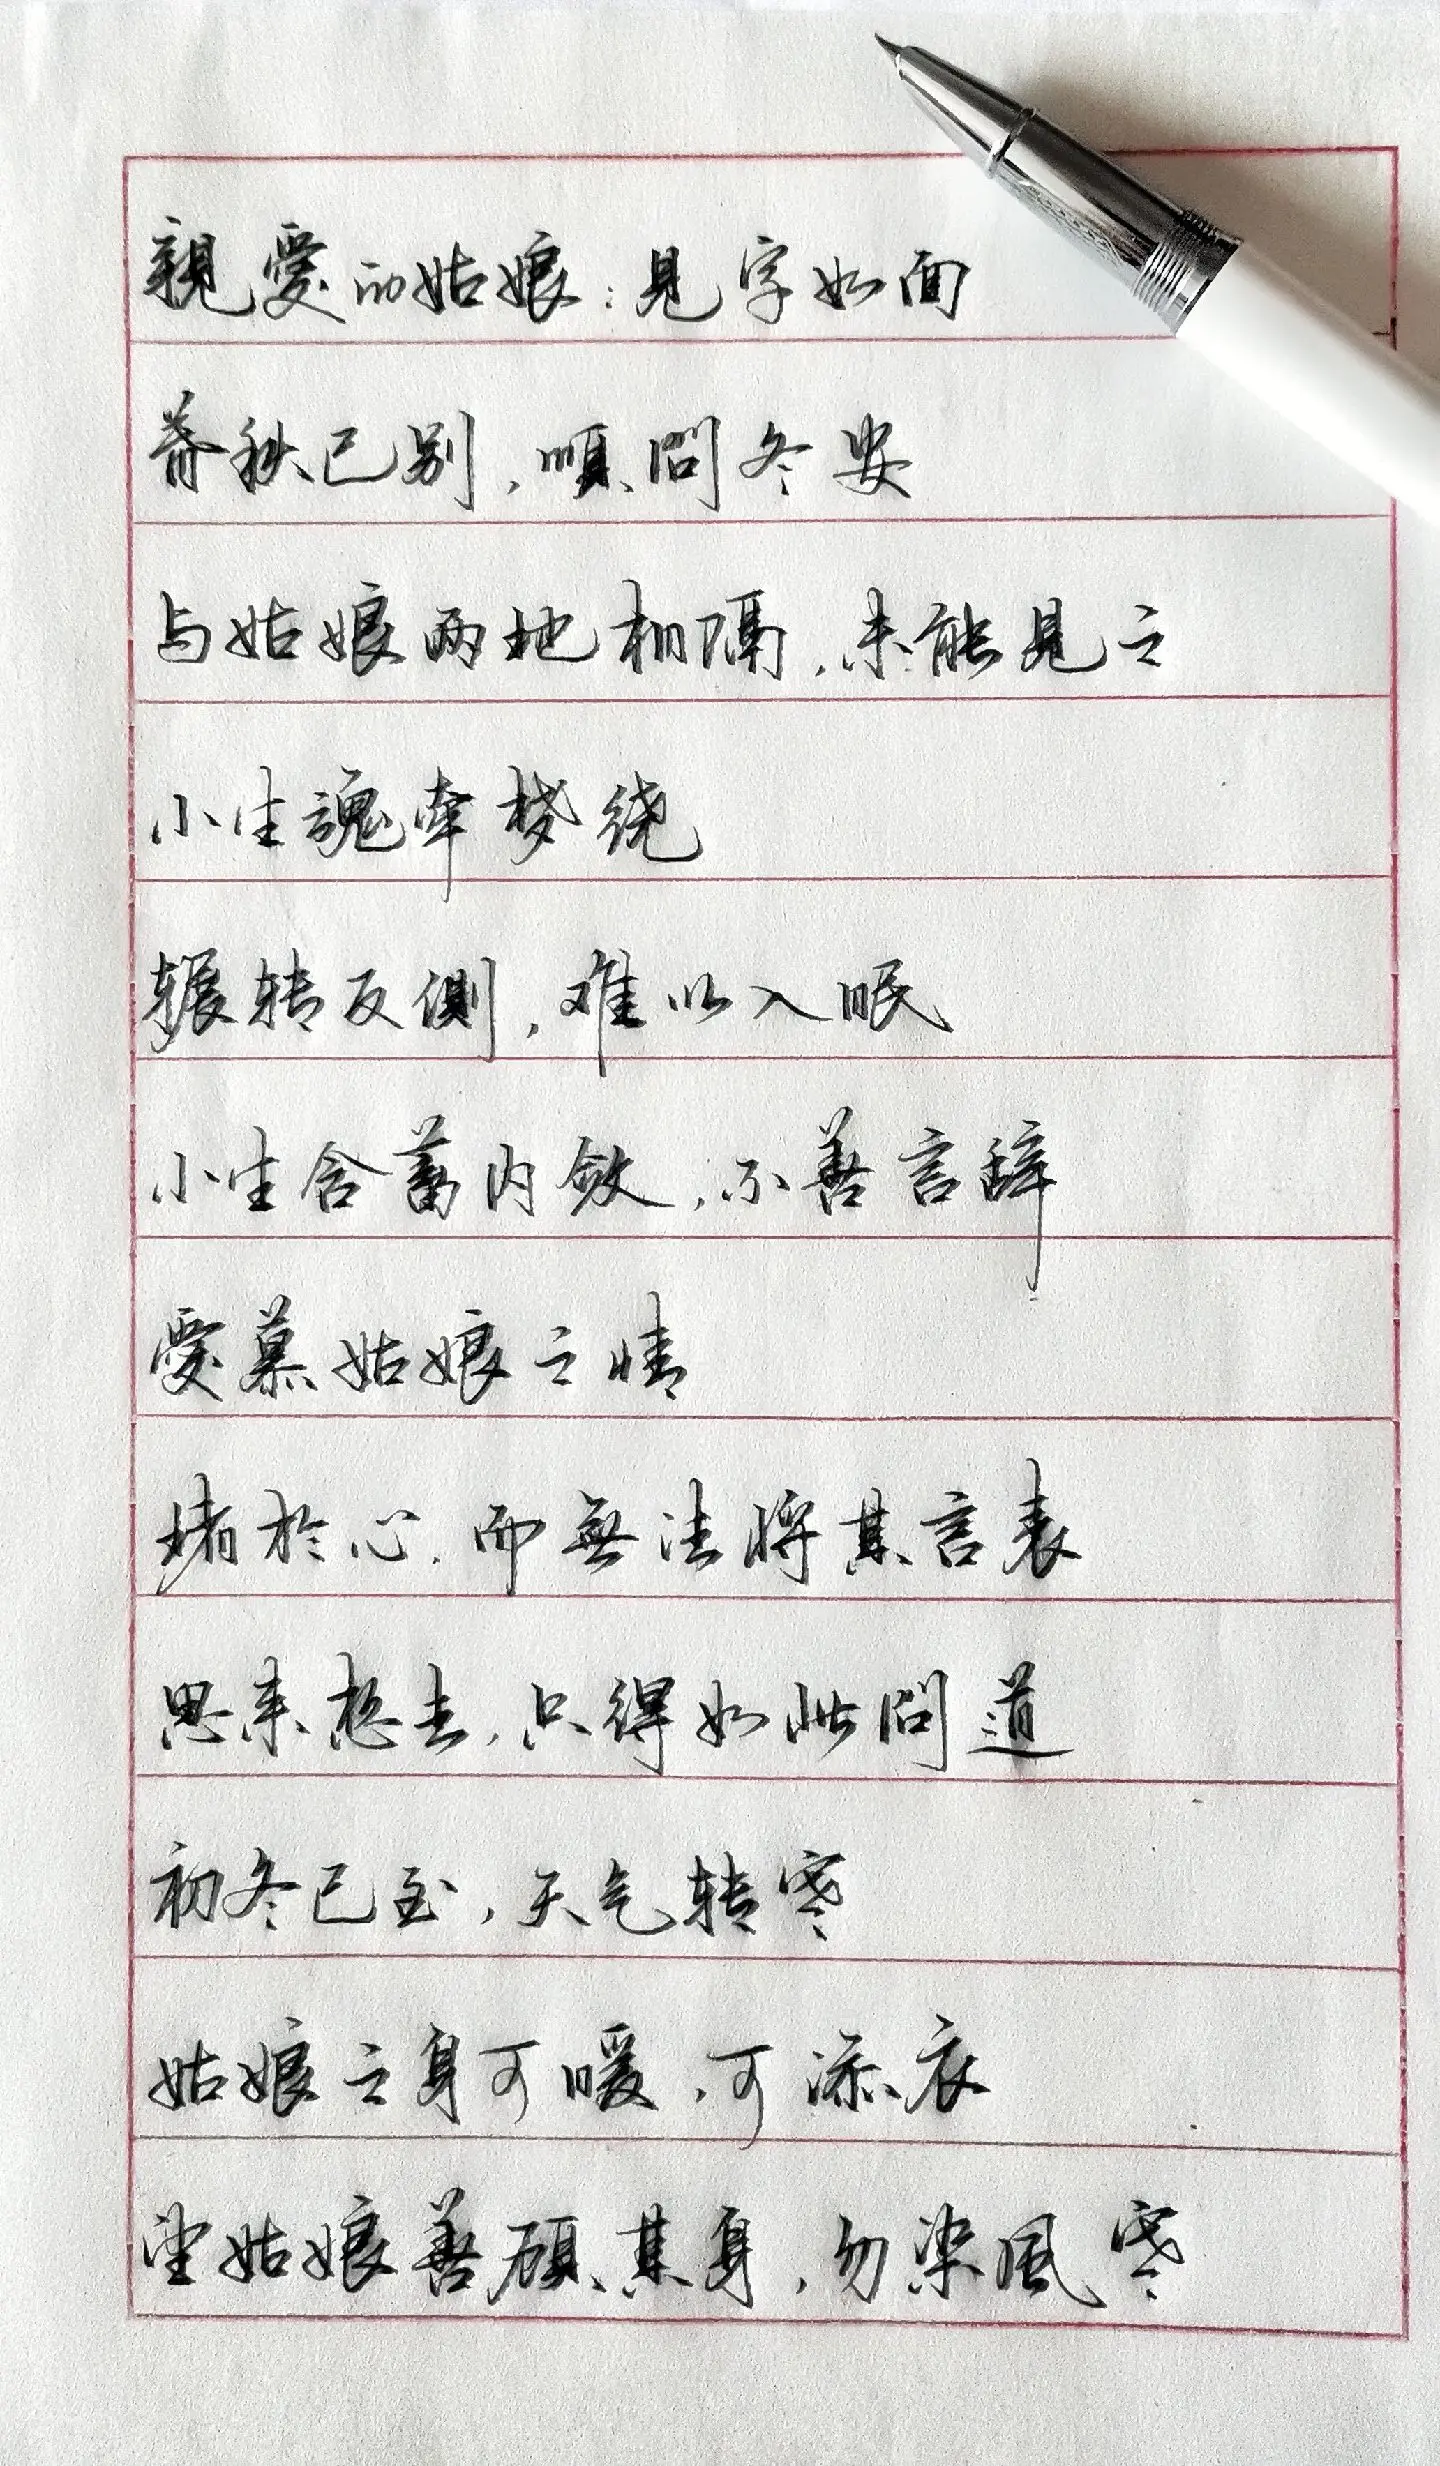 親愛的姑娘：見字如面
春秋已别，順問冬安
与姑娘两地相隔，未能見之
小生魂牵梦绕
辗转反側，难以入眠
小生含蓄内敛，不善言辞
愛慕姑娘之情
堵於心，而無法将其言表
思来想去，只得如此問道
初冬已至，天气转寒
姑娘之身可暖，可添衣
望姑娘善顧其身，勿染風寒